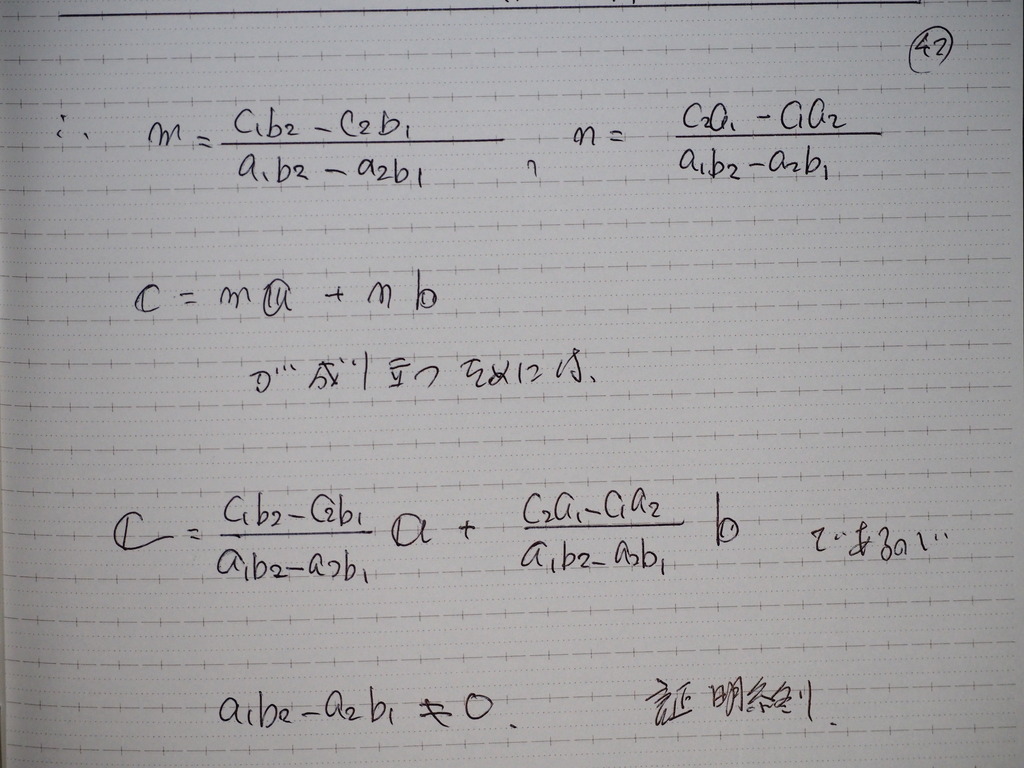 42
∴ m = (c₁b₂ - c₂b₁)/(a₁b₂ - a₂b₁) , n = (c₂a₁ - c₁a₂)/(a₁b₂ - a₂b₁)
𝕔 = m𝕒 + n𝕓
が成り立つ為には、
𝕔 = (c₁b₂ - c₂b₁)/(a₁b₂ - a₂b₁) 𝕒 + (c₂a₁ - c₁a₂)/(a₁b₂ - a₂b₁) 𝕓 であるので
a₁b₂ - a₂b₁ ≠ 0. 証明終り.